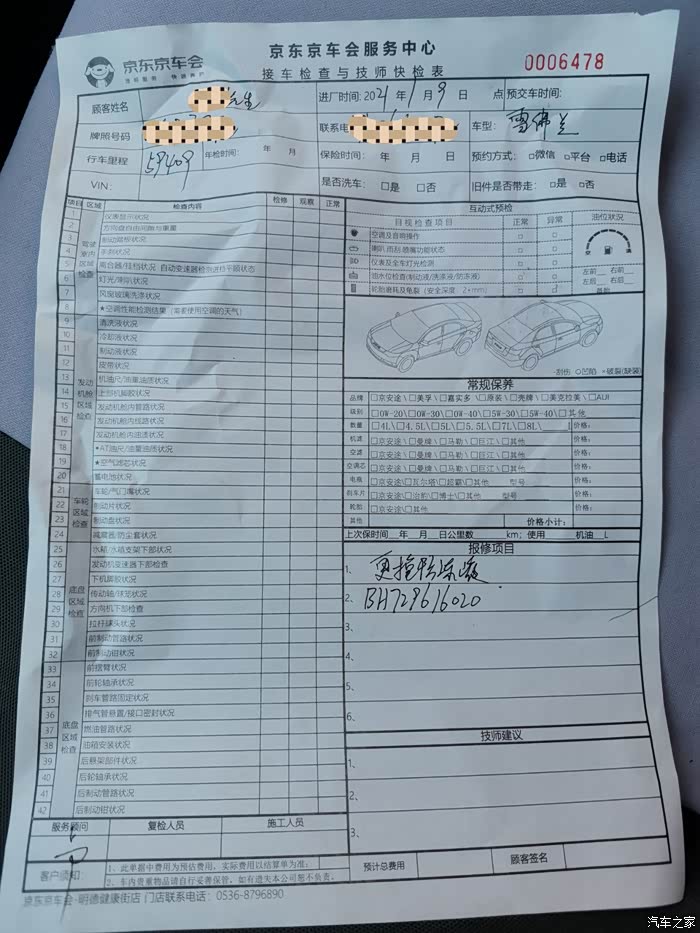 京东京车会
京东京车会服务中心
接车检查与技师快检表
0006478
顾客姓名 先生 进厂时间: 2021 年 1 月 9 日 点 预交车时间:
牌照号码 联系电 车型: 雪佛兰
行车里程 59409 年检时间: 年 月 保险时间: 年 月 日 预约方式: □微信 □平台 □电话
VIN: 是否洗车: □是 □否 旧件是否带走: □是 □否
项目 区域 检查内容 检修 观察 正常
1 仪表显示状况
2 方向盘自由间隙与重量
3 制动踏板状况
4 手刹状况
5 离合器/挂档状况 自动变速器检测进档平顺状态
6 灯光/喇叭状况
7 风窗玻璃洗涤状况
8 ★空调性能检测结果（需要使用空调的天气）
驾驶室内区域检查
9 清洗液状况
10 冷却液状况
11 制动液状况
12 皮带状况
13 机油尺/油量油质状况
14 上部机脚胶状况
15 发动机舱内管路状况
16 发动机舱内线路状况
17 发动机舱内油渍状况
18 *AT油尺/油量油质状况
19 ★空气滤芯状况
20 蓄电池状况
发动机舱区域检查
21 车轮/气门嘴状况
22 制动片状况
23 制动盘状况
24 减震器/防尘套状况
车轮区域检查
25 水箱/水箱支架下部状况
26 发动机变速器下部检查
27 下机脚胶状况
28 传动轴/球笼状况
29 方向机下部检查
30 拉杆球头状况
31 前制动管路状况
32 前制动钳状况
底盘区域检查
33 前摆臂状况
34 前轮轴承状况
35 刹车管路固定状况
36 排气管悬置/接口密封状况
37 燃油管路状况
38 油箱安装状况
39 后悬架部件状况
40 后轮轴承状况
41 后制动管路状况
42 后制动钳状况
底盘区域检查
互动式预检
目视检查项目 正常 异常 油位状况
空调及音响操作 □ □
喇叭雨刮喷嘴功能状态 □ □
仪表及全车灯光检测 □ □
油水位检查(制动液/洗涤液/防冻液) □ □
轮胎磨耗及龟裂（安全深度: 2*mm） □ □
左前__ 右前__
左后__ 右后__
-划伤 ○凹陷 ×破裂(缺装)
常规保养
品牌 □京安途\□美孚\□嘉实多 \□原装\□壳牌\□美克拉美\□AUI
级别 □0W-20\□0W-30\□0W-40\□5W-30\□5W-40\□其他
数量 □4L\□4.5L\□5L\□5.5L\□7L\□8L\ 价格:
机滤 □京安途\□曼牌\□马勒\□巨江\□其他 价格:
空滤 □京安途\□曼牌\□马勒\□巨江\□其他 价格:
空调芯 □京安途\□曼牌\□马勒\□巨江\□其他 价格:
电瓶 □京安途\□瓦尔塔\□超霸\□其他 型号 价格:
刹车片 □京安途\□冶韵\□博士\□其他 型号 价格:
轮胎 □京安途\□其他 价格:
其他 价格小计:
上次保时间__年__月__日公里数____km; 使用____机油__L
报修项目
1、更换防冻液
2、BH729616020
3、
4、
5、
6、
技师建议
1、
2、
3、
服务顾问 复检人员 施工人员
客户须知: 1、此单据中费用为预估费用，实际费用以结算单为准;
2、车内贵重物品请自行妥善保管，如有遗失本公司恕不负责。
预计总费用 顾客签名
京东京车会-明德健康街店 门店联系电话: 0536-8796890
汽车之家